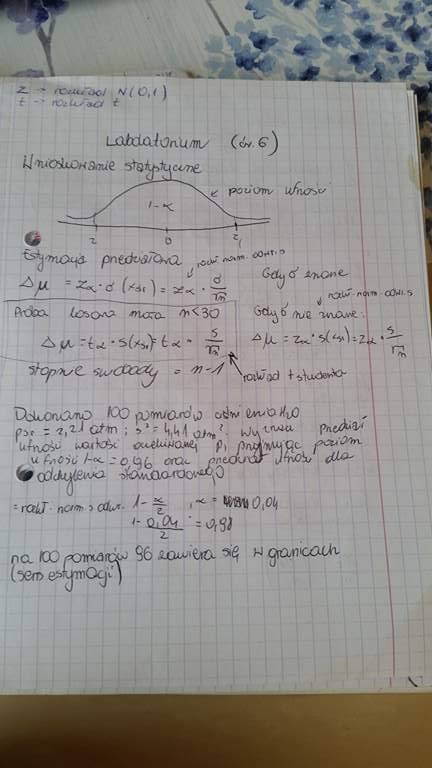 z → rozkład N(0,1)
t → rozkład t
Laboratorium (ćw. 6)
Wnioskowanie statystyczne
poziom ufności
1-α
z 0 z
Estymacja przedziałowa
rozkł. norm. odwr. s
Δμ = zα · σ(xśr) = zα · σ/√n
Gdy σ znane
Próba losowa mała n<30
Δμ = tα · s(xśr) = tα · s/√n
stopnie swobody = n-1
rozkład t studenta
Gdy σ nie znane:
rozkł. norm. odwr. s
Δμ = zα · s(xśr) = zα · s/√n
Dokonano 100 pomiarów ciśnienia
pśr = 2,21 atm; s² = 4,41 atm². Wyznacz przedział
ufności wartości oczekiwanej p, przyjmując poziom
ufności 1-α = 0,96 oraz przedział ufności dla
oddylenia standardowego
= rozkł. norm. s odwr. 1-α/2 , α = 0,04
1-0,04/2 = 0,98
na 100 pomiarów 96 zawiera się w granicach
(sens estymacji)